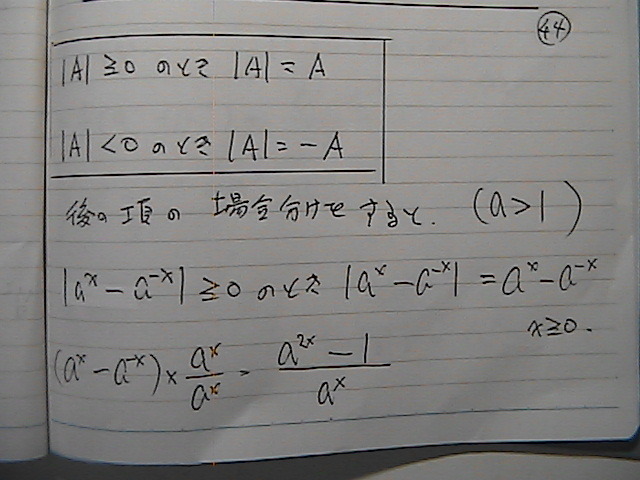 44
|A| ≥0 のとき |A| = A
|A| <0 のとき |A| = −A
後の項の 場合分けをすると. (a>1)
|a^x − a^{-x}| ≥0 のとき |a^x − a^{-x}| = a^x − a^{-x}
x≥0.
(a^x − a^{-x}) × \frac{a^x}{a^x} = \frac{a^{2x} − 1}{a^x}